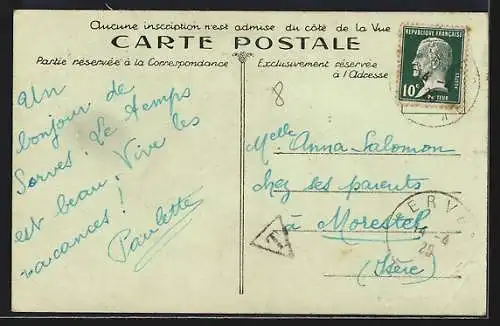 Aucune inscription n'est admise du côté de la Vue
CARTE POSTALE
Partie réservée à la Correspondance
Exclusivement réservée
à l'Adresse
REPUBLIQUE FRANÇAISE
10c
POSTES
8
Un
bonjour de
Sorves. Le temps
est beau. Vive les
vacances!
Paulette
Melle Anna Salomon
chez ses parents
à Morestel
(Isère)
T
ERV
14-4